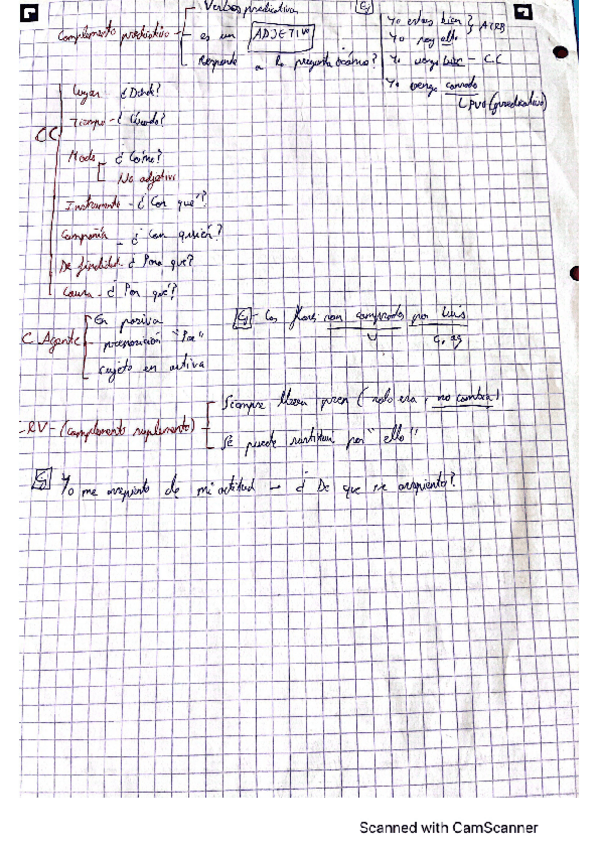 Verbos predicativos
Complemento predicativo - es un ADJETIVO
Responde a la pregunta ¿cómo?
Ej
Yo estoy bien } ATRB
Yo soy alto
Yo vengo bien - C.C
Yo vengo cansado
PVO (predicativo)
CC
Lugar ¿Dónde?
Tiempo - ¿Cuándo?
Modo ¿Cómo?
No adjetivo
Instrumento - ¿Con qué?
Compañía - ¿Con quién?
De finalidad ¿Para qué?
Causa - ¿Por qué?
C. Agente
En pasiva
preposición "Por"
sujeto en activa
Ej - Las flores son compradas por Luis
V C. ag
CRV - (complemento suplemento)
Siempre lleva prep (solo esa, no cambia)
Se puede sustituir por "ello"
Ej Yo me arrepiento de mi actitud → ¿De que me arrepiento?
Scanned with CamScanner